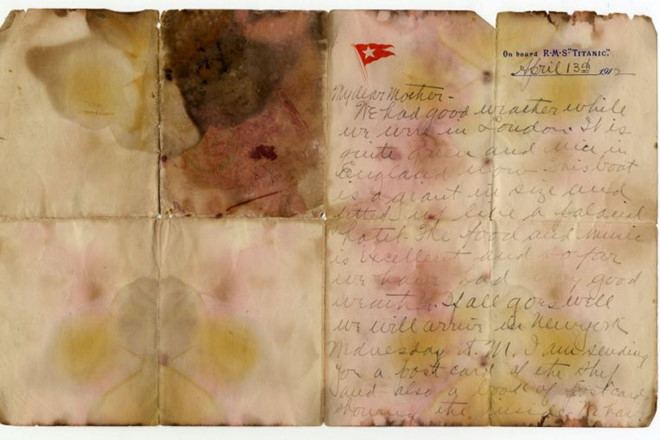 On board R·M·S "TITANIC."
April 13th 1912
My dear Mother -
We had good weather while
we were in London. It is
quite green and nice in
England now. This boat
is a giant in size and
fitted up like a palacial
hotel. The food and music
is excellent and so far
we have had good
weather. If all goes well
we will arrive in New York
Wednesday A.M. I am sending
you a post card of the ship
and also a book of Post cards
showing the inside